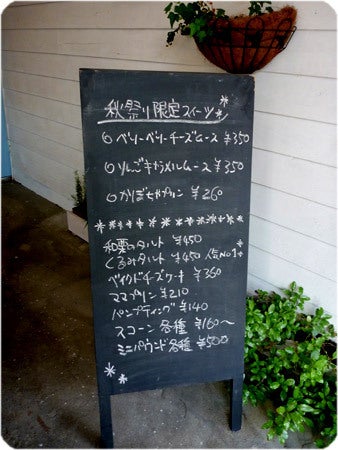 秋祭り限定スイーツ
◎ベリーベリーチーズムース ¥350
◎りんごキャラメルムース ¥350
◎かぼちゃプリン ¥260
和栗のタルト ¥450
くるみタルト ¥450 人気No.1
ベイクドチーズケーキ ¥350
ママプリン ¥210
パンプディング ¥140
スコーン 各種 ¥160〜
ミニパウンド各種 ¥500